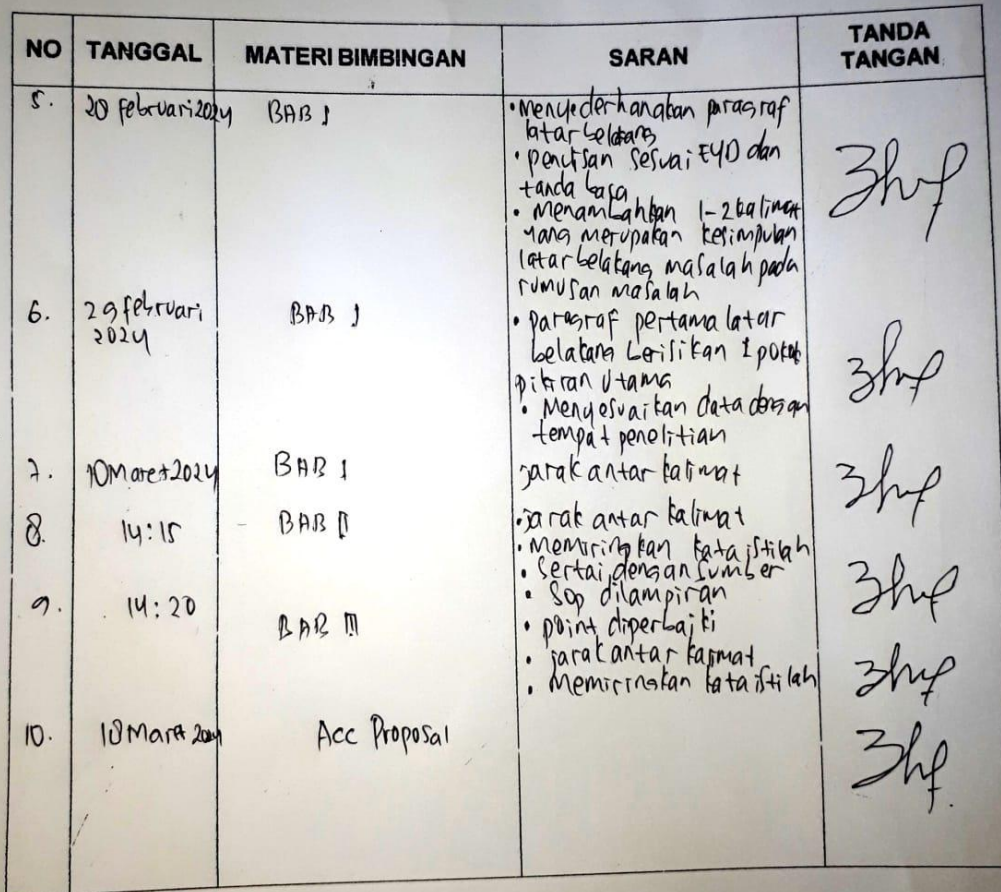 NO TANGGAL MATERI BIMBINGAN SARAN TANDA TANGAN
5. 20 Februari 2024 BAB I
• Menyederhanakan paragraf
latar belakang
• penulisan sesuai EYD dan
tanda baca
• Menambahkan 1-2 kalimat
yang merupakan kesimpulan
latar belakang masalah pada
rumusan masalah
6. 29 februari
2024
BAB I
• paragraf pertama latar
belakang berisikan 1 pokok
pikiran utama
• Menyesuaikan data dengan
tempat penelitian
7. 10 Maret 2024 BAB I jarak antar kalimat
8. 14:15 BAB II • jarak antar kalimat
• Memiringkan kata istilah
• Sertai dengan sumber
9. 14:20 BAB III • Sop dilampiran
• point diperbaiki
• jarak antar kalimat
• Memiringkan kata istilah
10. 18 Maret 2024 Acc Proposal